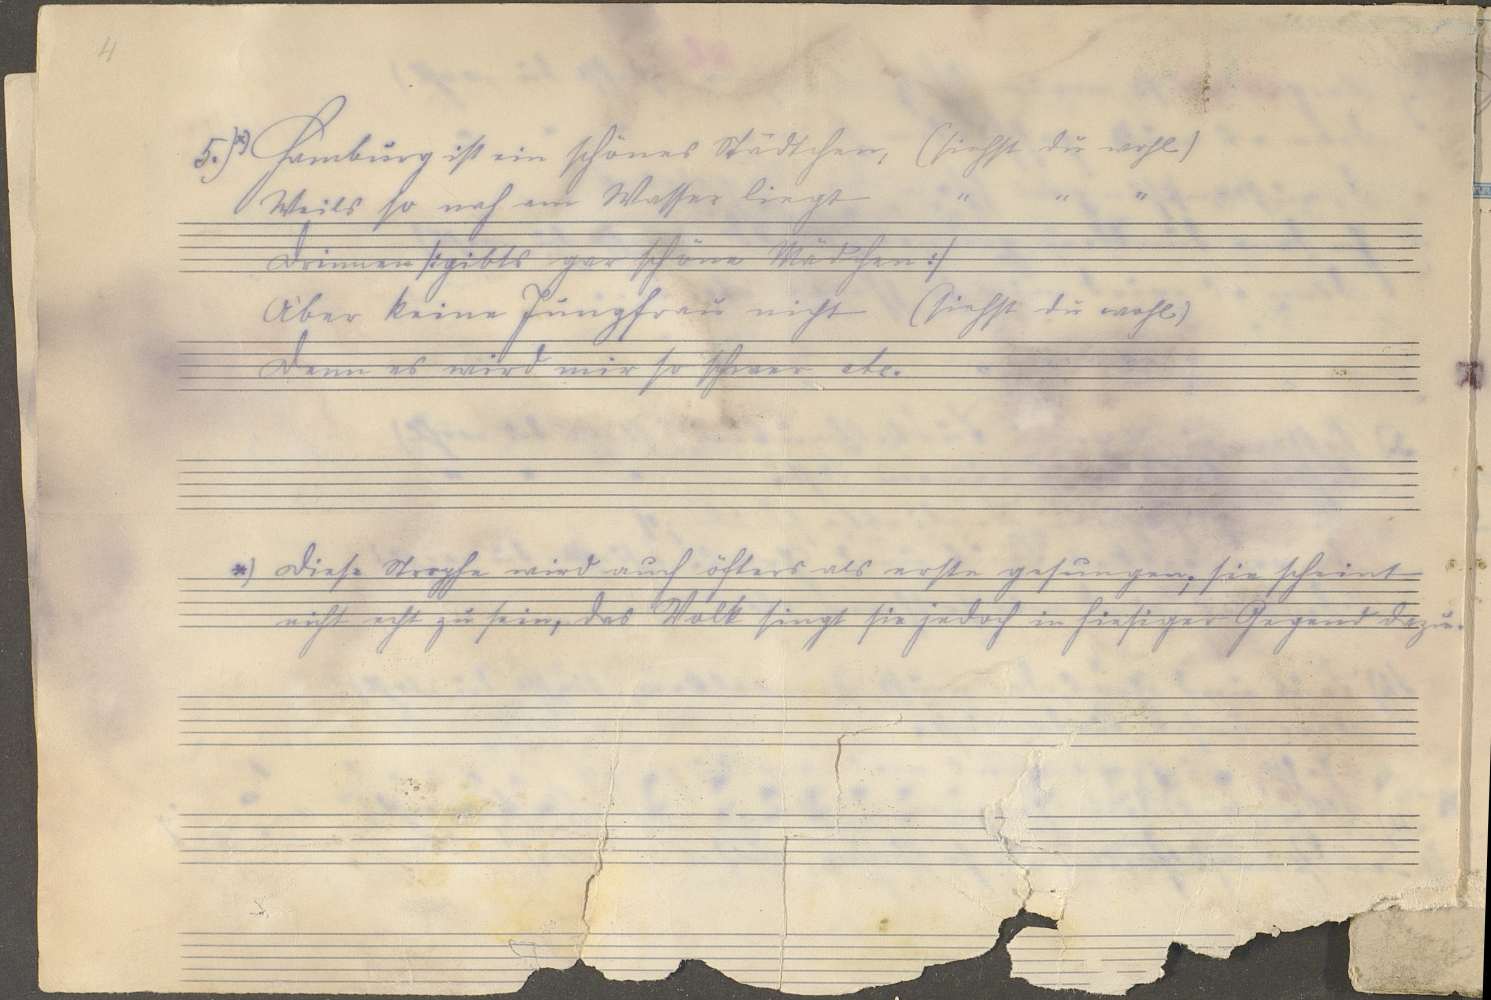 4
5.)*) Hamburg ist ein schönes Städtchen, (siehst du wohl)
Weils so nah am Wasser liegt " " "
Drinnen |: gibts gar schöne Mädchen :|
Aber keine Jungfrau nicht (siehst du wohl)
Denn es wird mir so schwer etc.
*) Diese Strophe wird auch öfters als erste gesungen; sie scheint
nicht echt zu sein, das Volk singt sie jedoch in hiesiger Gegend dazu.